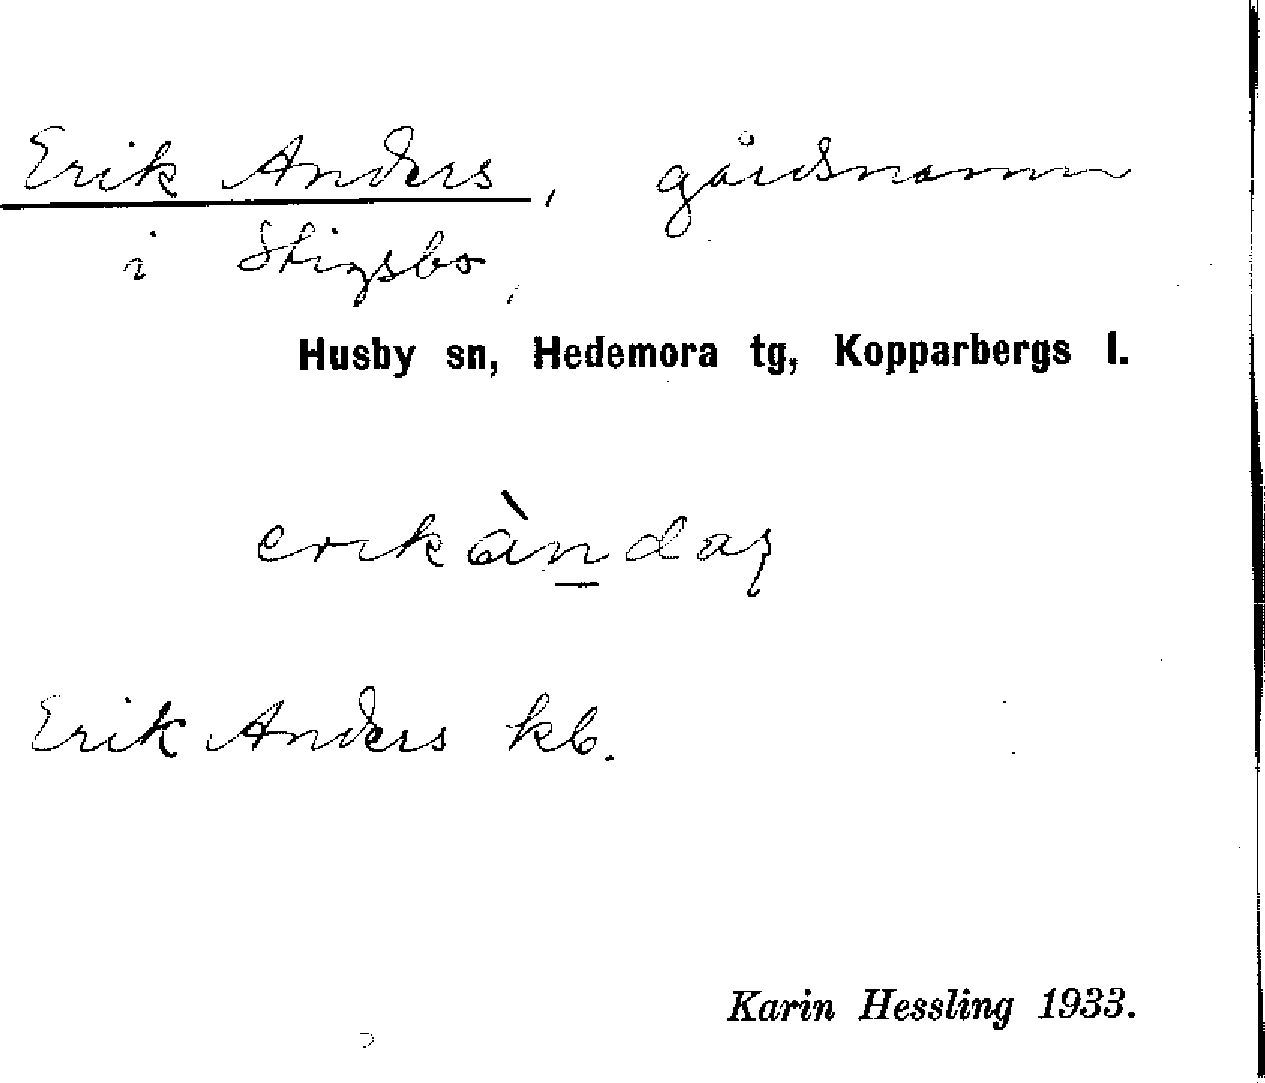 Erik Anders, gårdsnamn
i Stigsbo,
Husby sn, Hedemora tg, Kopparbergs l.
Erik Anders kb.
Karin Hessling 1933.